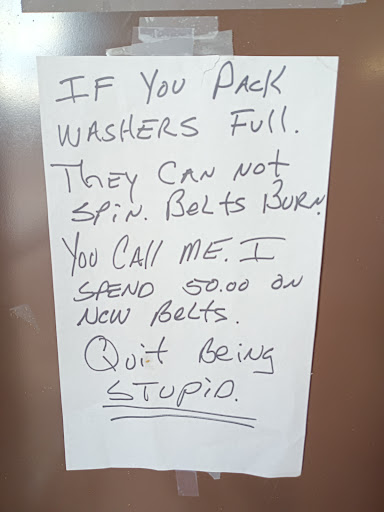 IF YOU PACK
WASHERS FULL.
THEY CAN NOT
SPIN. BELTS BURN.
YOU CALL ME. I
SPEND 50.00 ON
NEW BELTS.
QUIT BEING
STUPID.